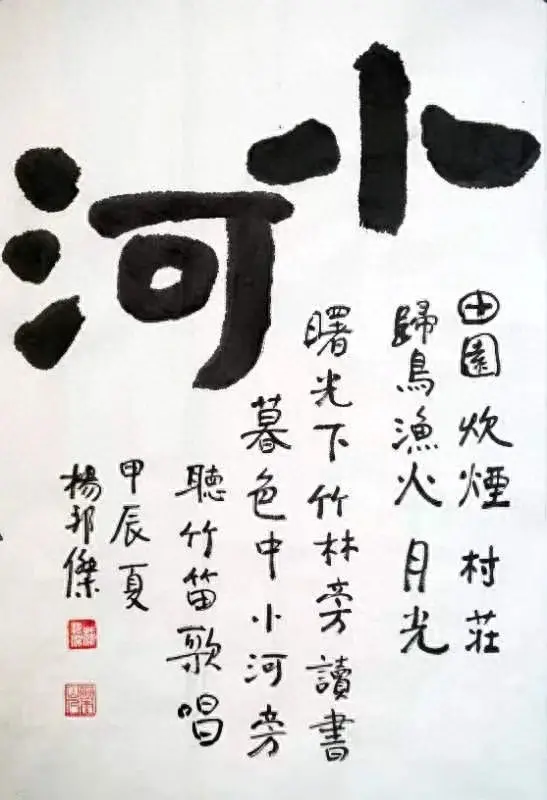 小河
田園 炊煙 村莊
歸鳥漁火 月光
曙光下竹林旁讀書
暮色中小河旁
聽竹笛歌唱
甲辰夏
楊邦傑